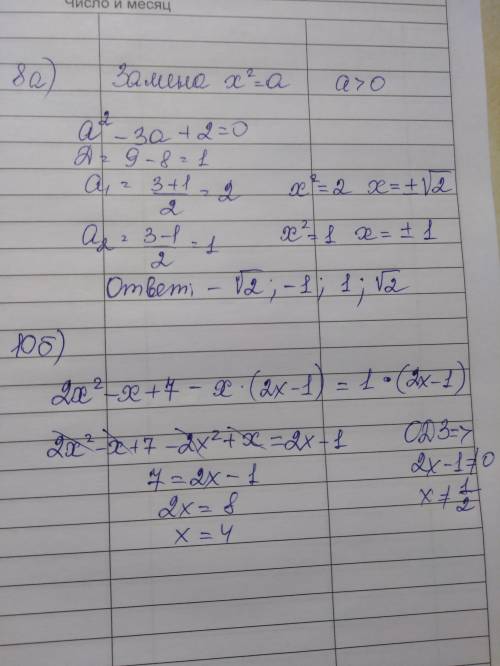 Число и месяц
8а) Замена x²=a a>0
a²-3a+2=0
Д= 9-8=1
a₁ = (3+1)/2 = 2 x²=2 x=±√2
a₂ = (3-1)/2 = 1 x²=1 x=±1
Ответ: -√2; -1; 1; √2
10б)
2x²-x+7-x·(2x-1)=1·(2x-1)
2x²-x+7-2x²+x=2x-1 ОДЗ=>
7=2x-1 2x-1≠0
2x=8 x≠1/2
x=4